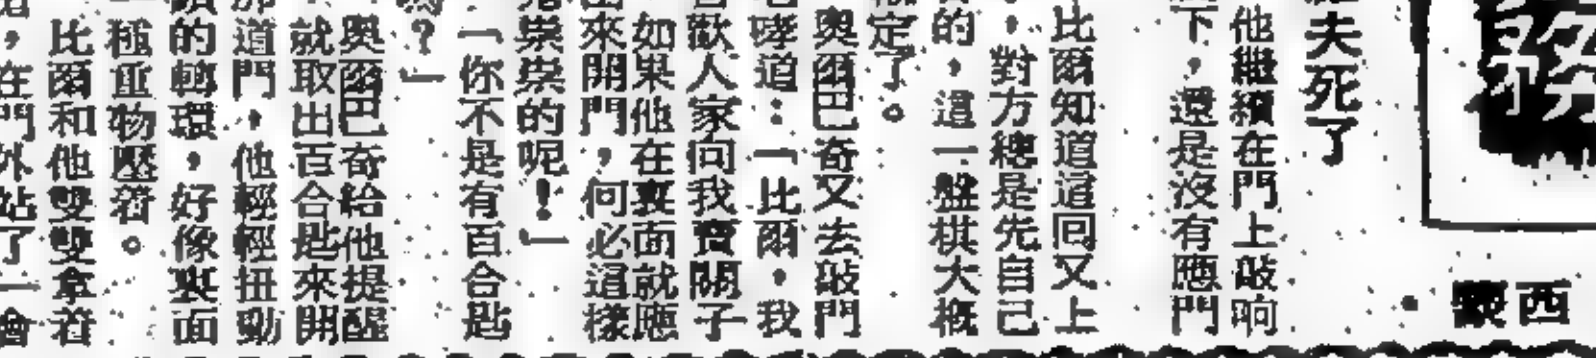 西蒙
夫死了
他繼續在門上敲响
下，還是沒有應門
比爾知道這回又上
，對方總是先自己
的，這一盤棋大概
定了。
奧爾巴奇又去敲門
哮道：「比爾，我
歡人家向我賣關子
如果他在裏面就應
出來開門，何必這樣
祟祟的呢！」
「你不是有百合匙
嗎？」
奧爾巴奇給他提醒
就取出百合匙來開
那道門，他輕輕扭動
的轉環，好像裏面
極重物壓着。
比爾和他雙雙拿着
，在門外站了一會